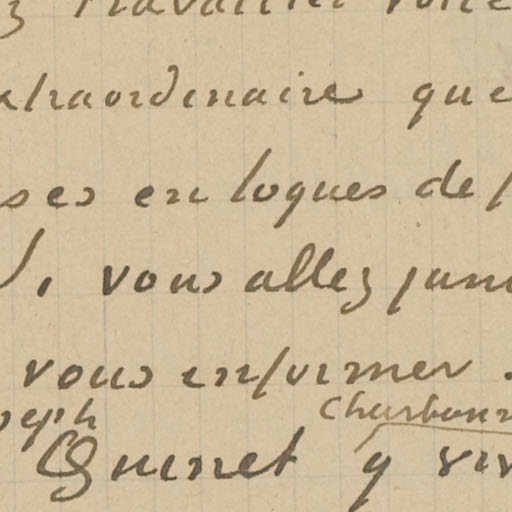 z travailler votre
xtraordinaire que
ses en loques de
vous allez jam
vous informer.
seph Charbonn
Guinet y viv